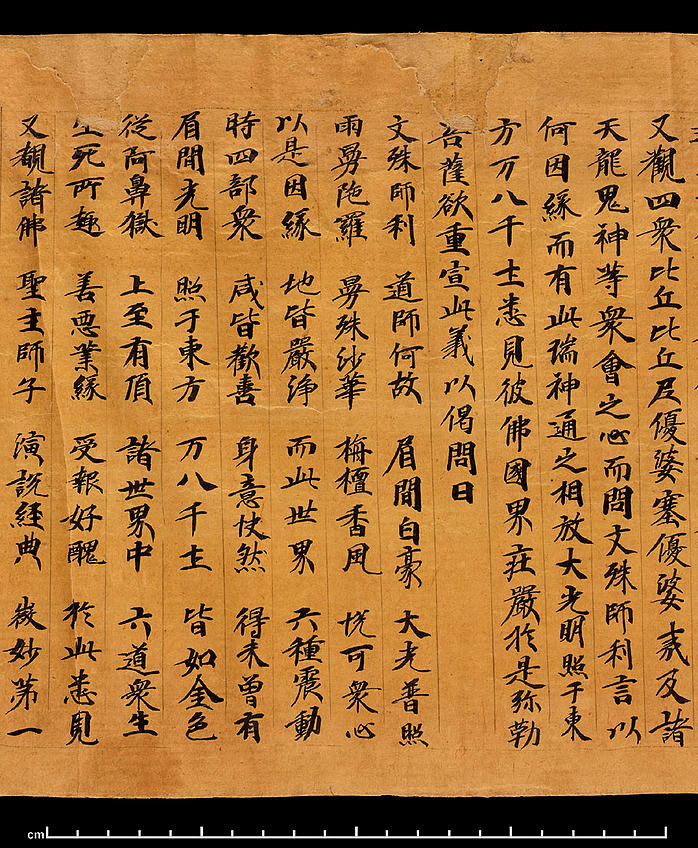 又觀四衆比丘比丘尼優婆塞優婆夷及諸
天龍鬼神等衆會之心而問文殊師利言以
何因緣而有此瑞神通之相放大光明照于東
方万八千土悉見彼佛國界莊嚴於是弥勒
菩薩欲重宣此義以偈問曰
文殊師利 道師何故 眉間白豪 大光普照
雨曼陁羅 曼殊沙華 栴檀香風 悅可衆心
以是因緣 地皆嚴淨 而此世界 六種震動
時四部衆 咸皆歡喜 身意快然 得未曾有
眉間光明 照于東方 万八千土 皆如金色
從阿鼻獄 上至有頂 諸世界中 六道衆生
生死所趣 善惡業緣 受報好醜 於此悉見
又覩諸佛 聖主師子 演說經典 微妙第一
cm